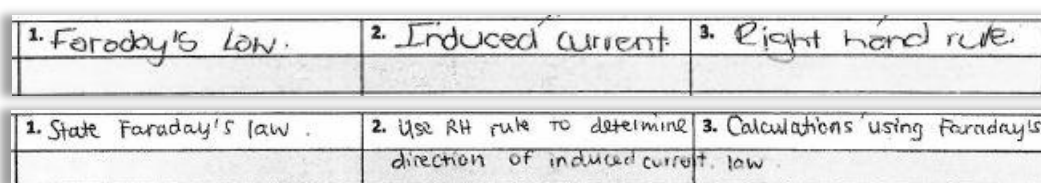 1. Faraday's Law.
2. Induced current
3. Right hand rule.
1. State Faraday's law.
2. Use RH rule to determine
direction of induced current.
3. Calculations using Faraday's
law.